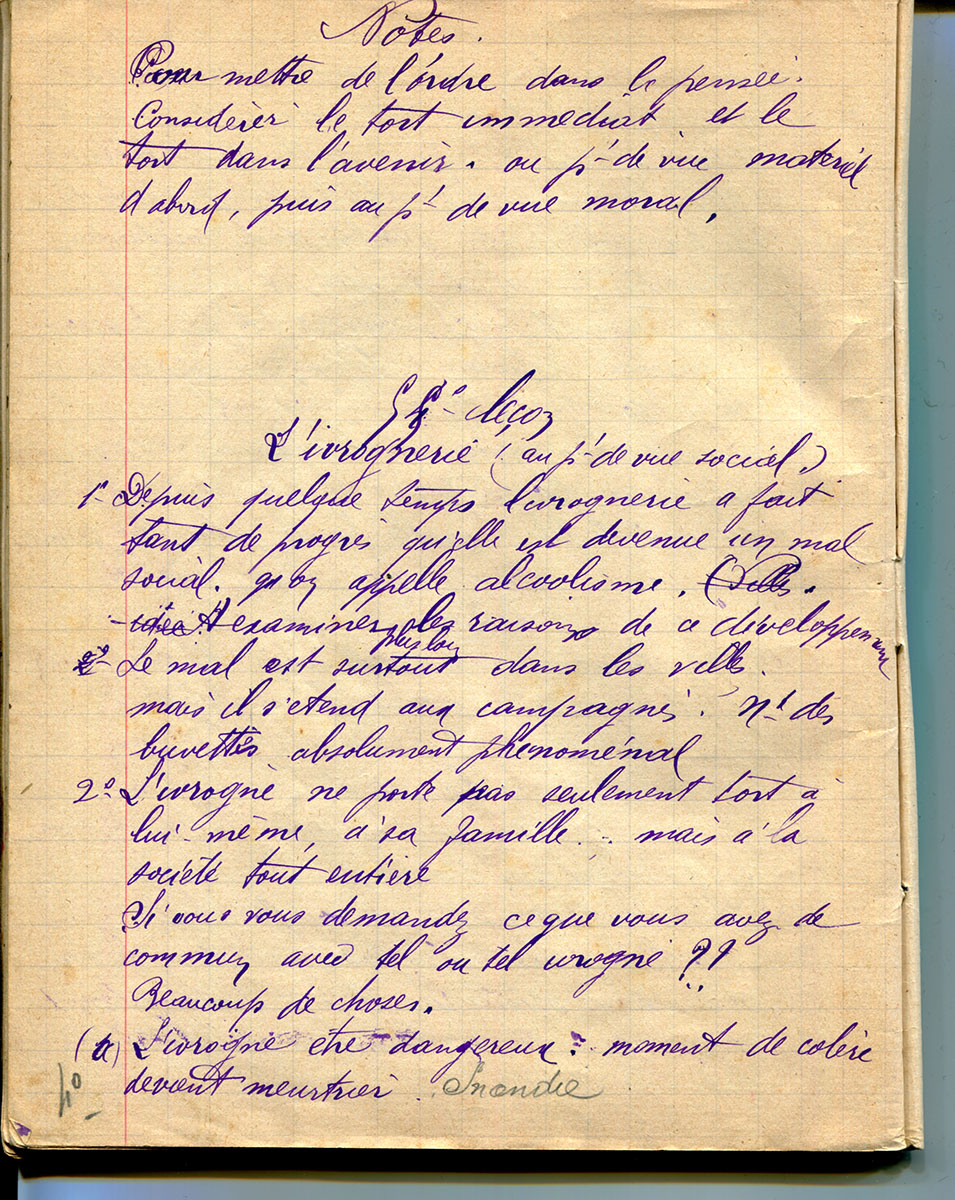 Notes.
Pour mettre de l'ordre dans la pensée.
Considérer le tort immédiat et le
tort dans l'avenir. au pt de vue matériel
d'abord, puis au pt de vue moral.
leçon
L'ivrognerie (au pt de vue social.)
1º Depuis quelque temps l'ivrognerie a fait
tant de progrès qu'elle est devenue un mal
social. qu'on appelle alcoolisme.
A examiner plus loin les raisons de ce développement
Le mal est surtout dans les villes.
mais il s'étend aux campagnes. Nt des
buvettes absolument phénoménal
2º L'ivrogne ne porte pas seulement tort à
lui-même, à sa famille... mais à la
société tout entière
Si vous vous demandez ce que vous avez de
commun avec tel ou tel ivrogne ??
Beaucoup de choses.
(a) L'ivrogne être dangereux : moment de colère
devient meurtrier. Incendie